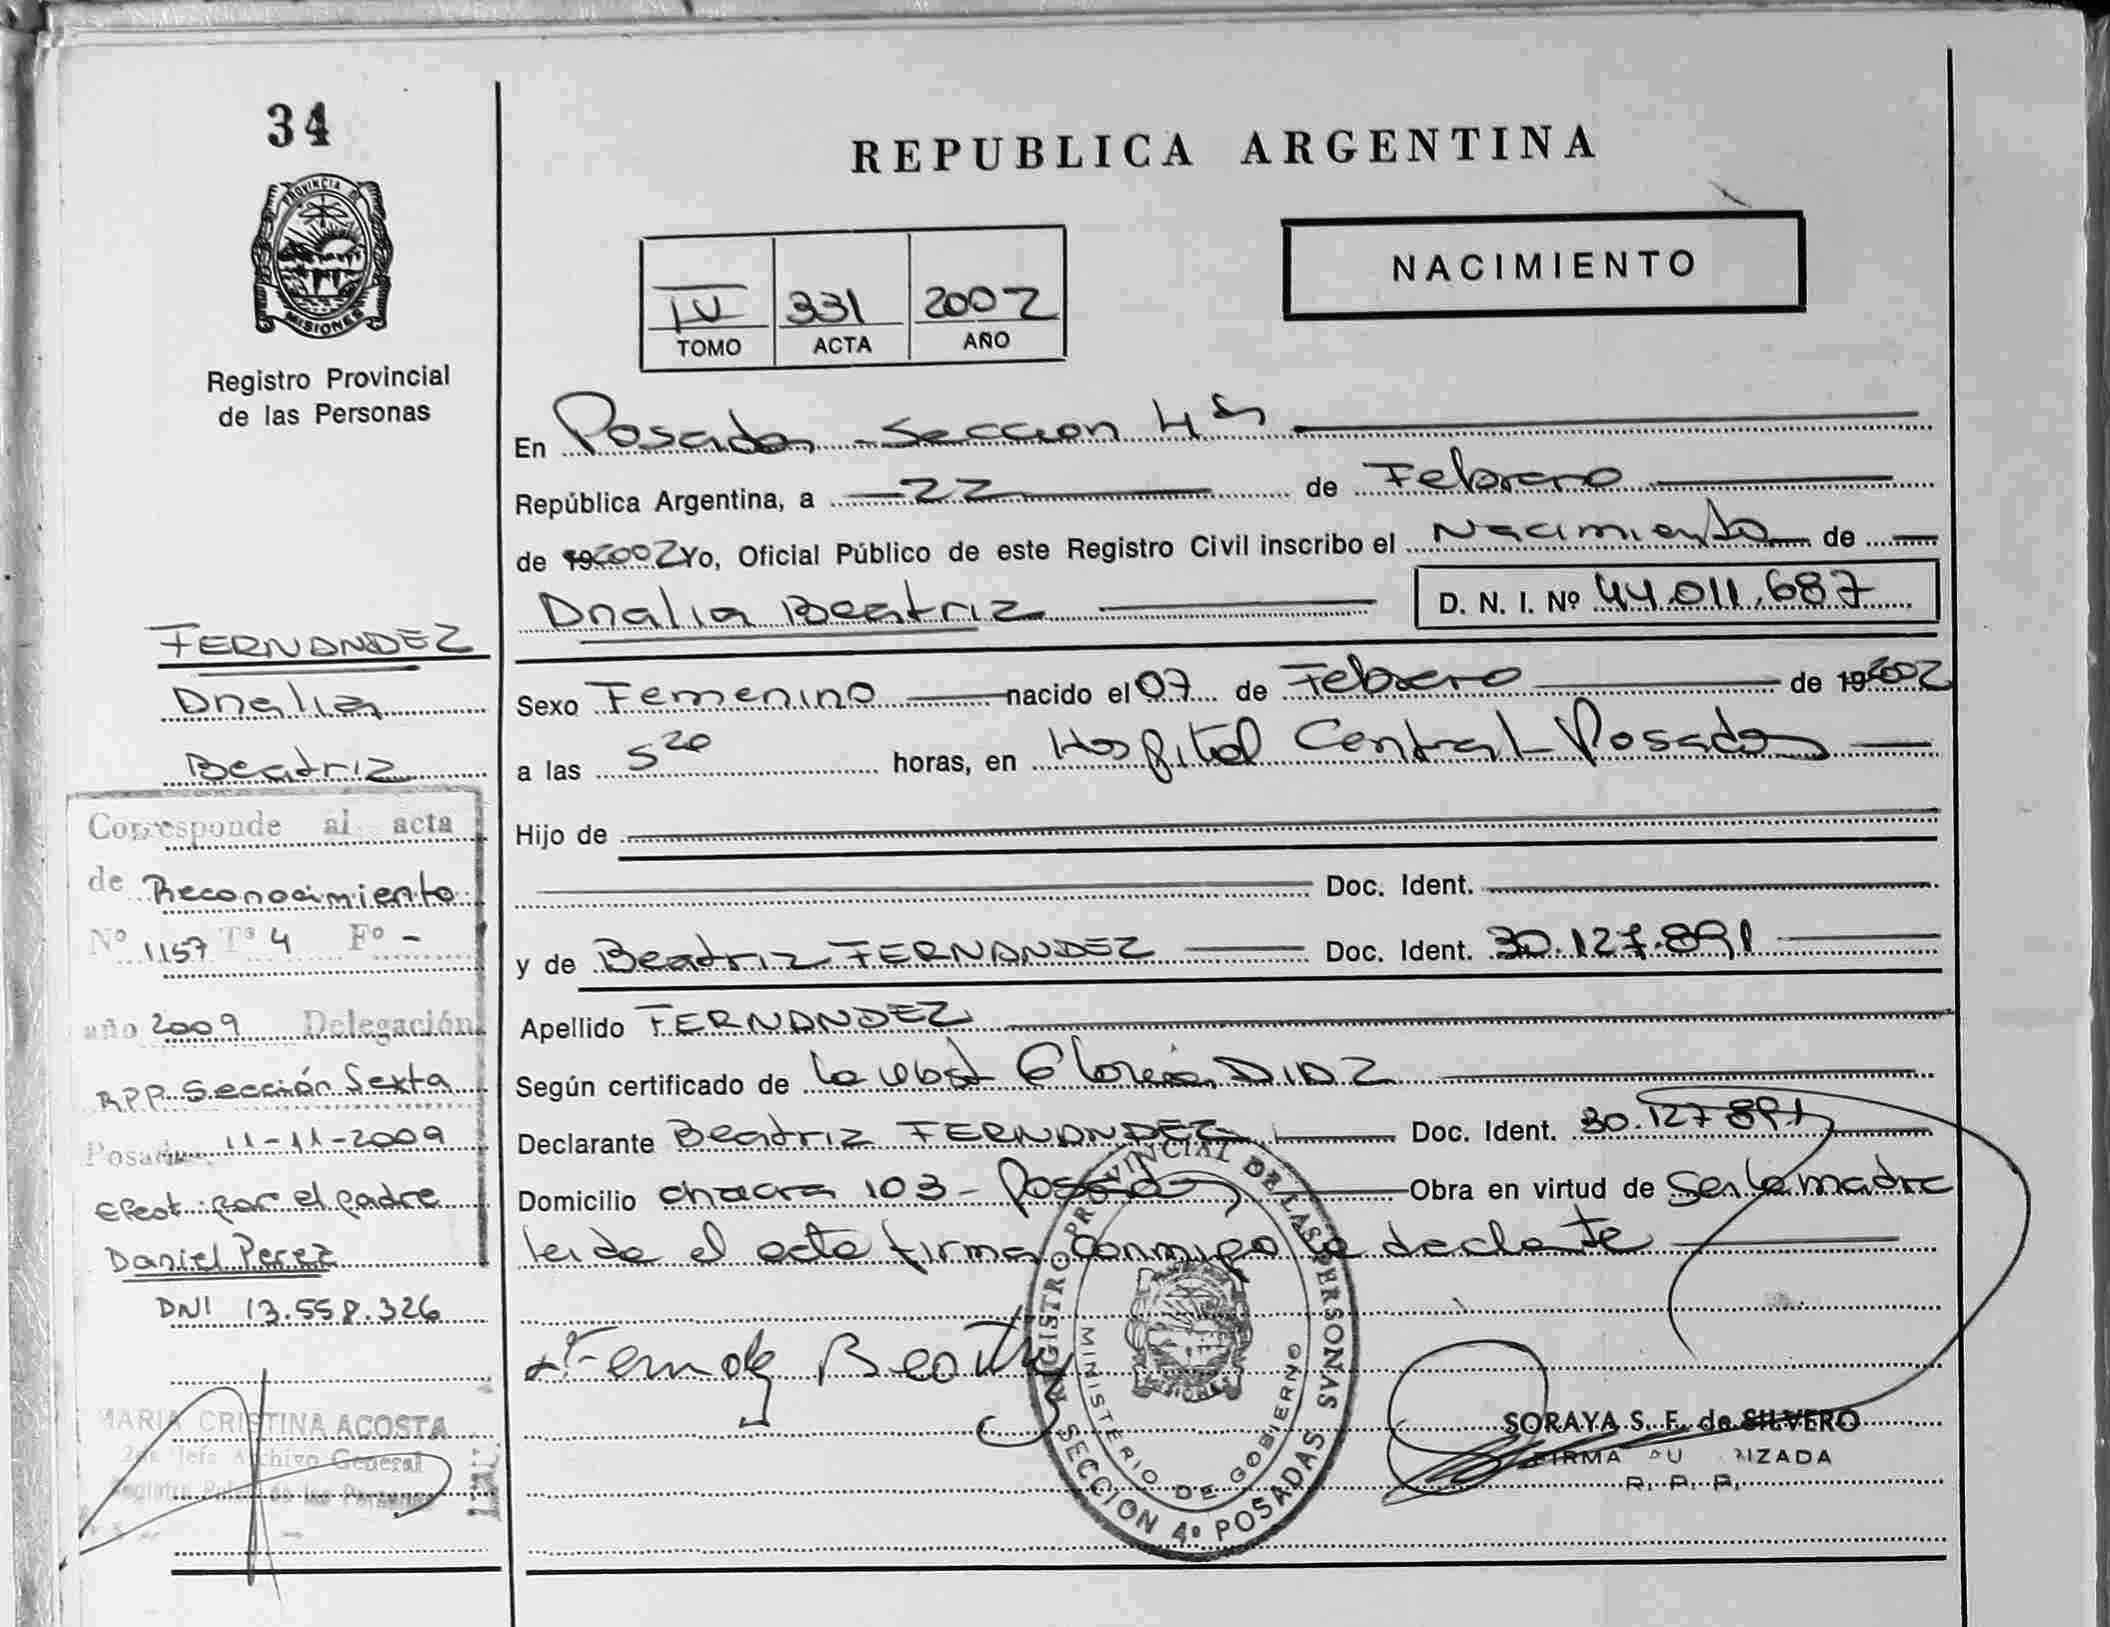 34
PROVINCIA DE
MISIONES
Registro Provincial
de las Personas
FERNANDEZ
Analia
Beatriz
Corresponde al acta
de Reconocimiento
Nº 1157 Tº 4 Fº -
año 2009 Delegación
R.P.P. Sección Sexta
Posadas, 11-11-2009
efect. por el padre
Daniel Perez
DNI 13.558.326
MARIA CRISTINA ACOSTA
Jefe Archivo General
de las Personas
REPUBLICA ARGENTINA
NACIMIENTO
IV 331 2002
TOMO ACTA AÑO
En Posadas - Seccion 4ta
República Argentina, a 22 de Febrero
de 192002 Yo, Oficial Público de este Registro Civil inscribo el Nacimiento de
Analia Beatriz D. N. I. Nº 44.011.687
Sexo Femenino nacido el 07 de Febrero de 192002
a las 5 20 horas, en Hospital Central - Posadas
Hijo de
Doc. Ident.
y de Beatriz FERNANDEZ Doc. Ident. 30.127.891
Apellido FERNANDEZ
Según certificado de la obst DIAZ
Declarante Beatriz FERNANDEZ Doc. Ident. 30.127.891
Domicilio chacra 103 - Posadas Obra en virtud de ser la madre
leida el acta firma conmigo la declarante
Beatriz
REGISTRO PROVINCIAL DE LAS PERSONAS
MINISTERIO DE GOBIERNO
MISIONES
SECCION 4º POSADAS
SORAYA S. F. de SILVERO
FIRMA AU RIZADA
R. P. P.